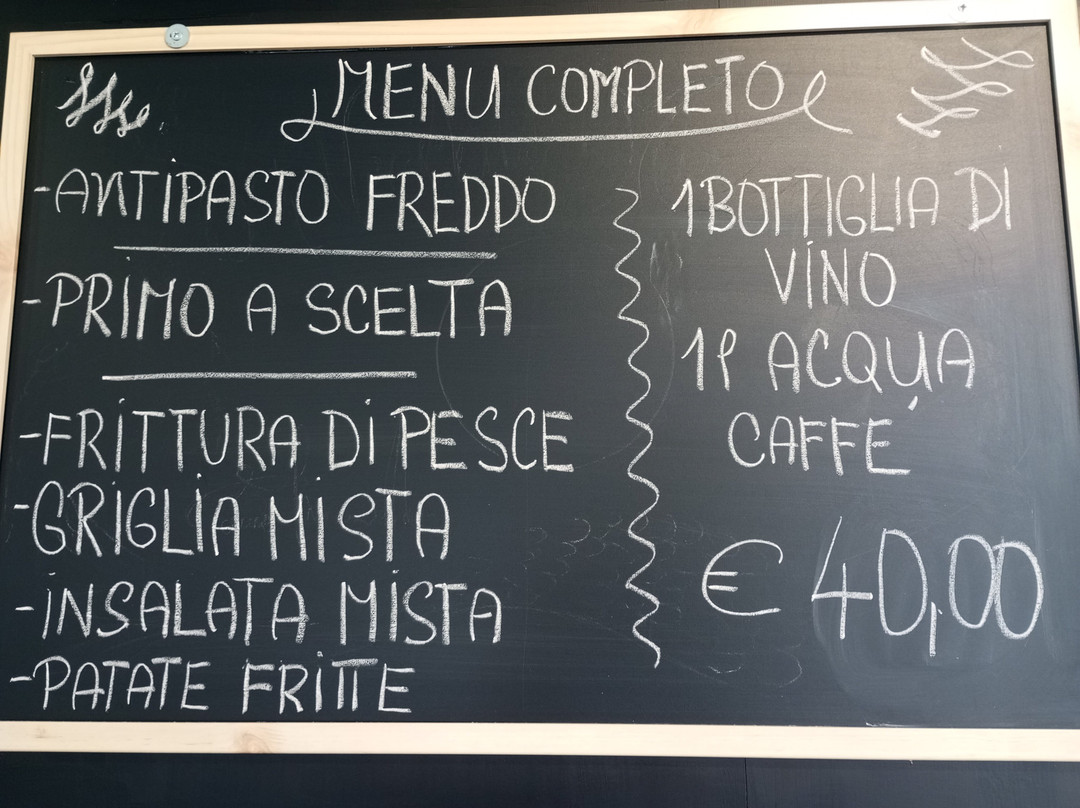 MENU COMPLETO
-ANTIPASTO FREDDO
-PRIMO A SCELTA
-FRITTURA DI PESCE
-GRIGLIA MISTA
-INSALATA MISTA
-PATATE FRITTE
1 BOTTIGLIA DI
VINO
1P ACQUA
CAFFE'
€ 40,00